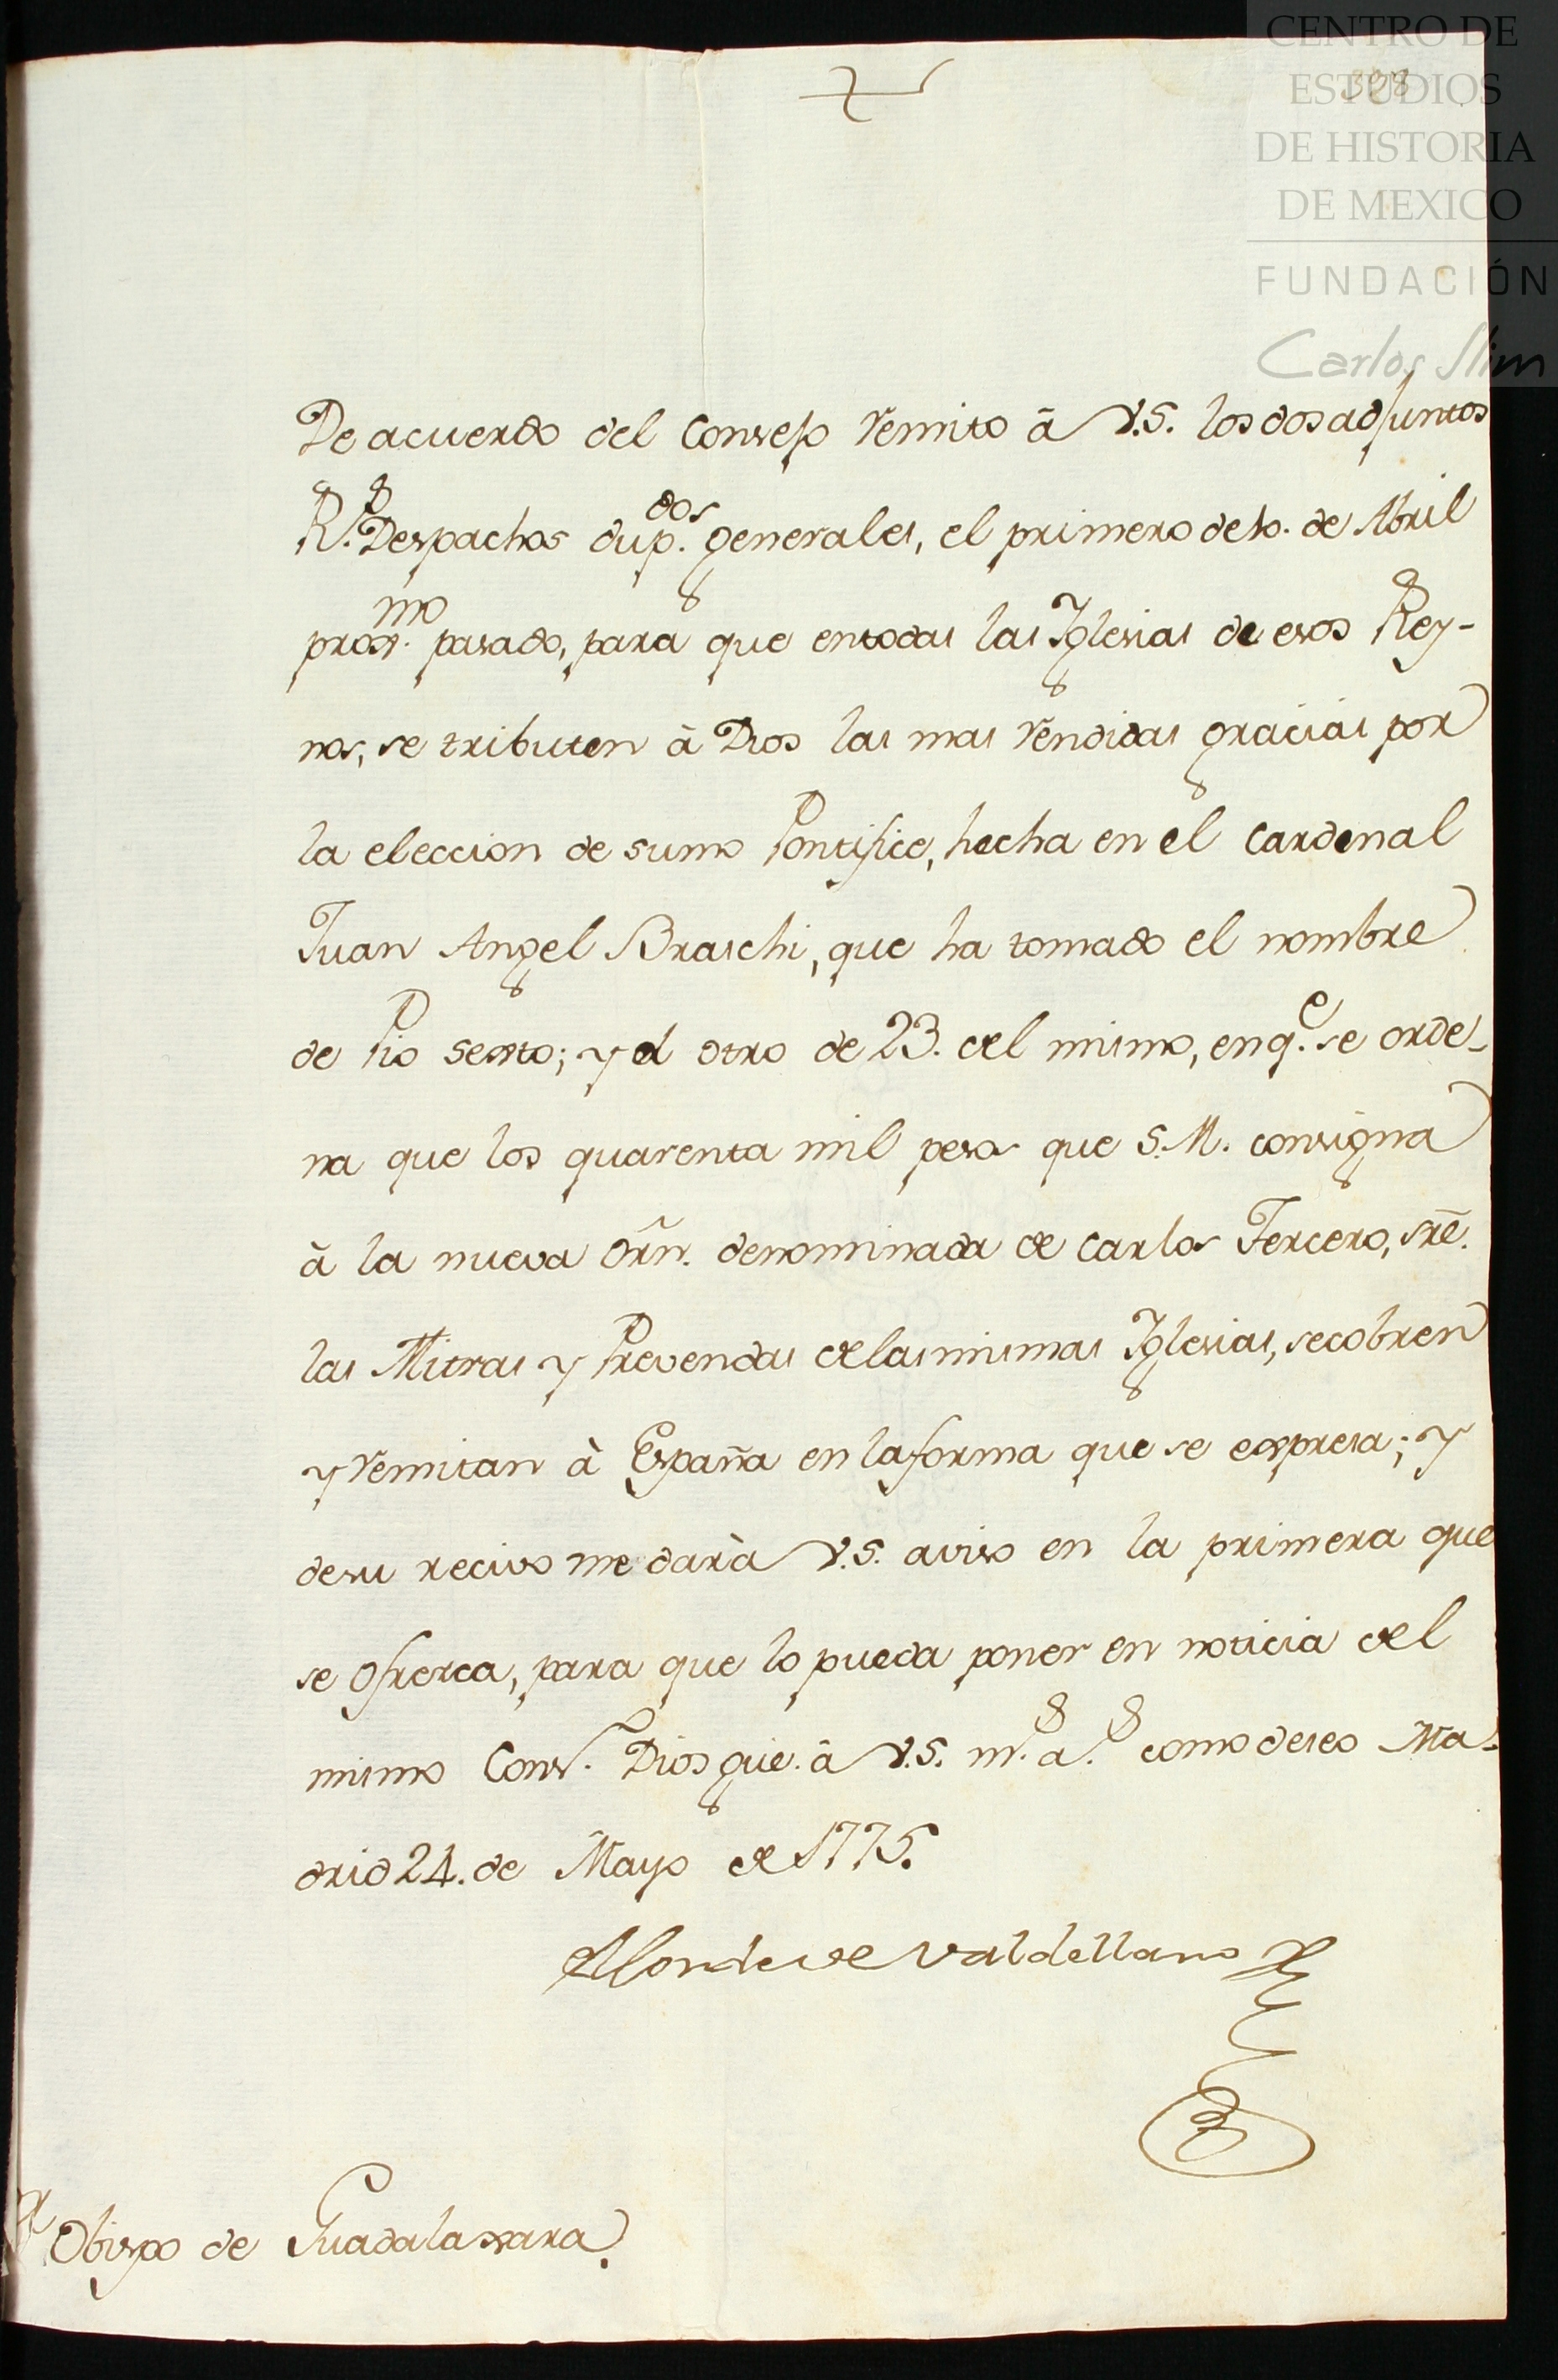 CENTRO DE
ESTUDIOS
DE HISTORIA
DE MEXICO
FUNDACIÓN
Carlos Slim
De acuerdo del Consejo remito à V.S. los dos adjuntos
R.^s Despachos dup.^dos generales, el primero de 10. de Abril
prox.^mo pasado, para que en todas las Iglesias de esos Rey-
nos, se tributen à Dios las mas rendidas gracias por
la eleccion de sumo Pontifice, hecha en el Cardenal
Juan Angel Braschi, que ha tomado el nombre
de Pio sexto; y el otro de 23. del mismo, en q.^e se orde-
na que los quarenta mil pesos que S.M. consigna
à la nueva Orñ. denominada de Carlos Tercero, sr̃e.
las Mitras y Prevendas de las mismas Iglesias, se cobren
y remitan à España en la forma que se expresa; y
de su recivo me darà V.S. aviso en la primera que
se ofrezca, para que lo pueda poner en noticia del
mismo Cons.^o Dios gũe. à V.S. m.^s a.^s como deseo Ma-
drid 24. de Mayo de 1775.
El Conde de Valdellano
S.^r Obispo de Guadalaxara.